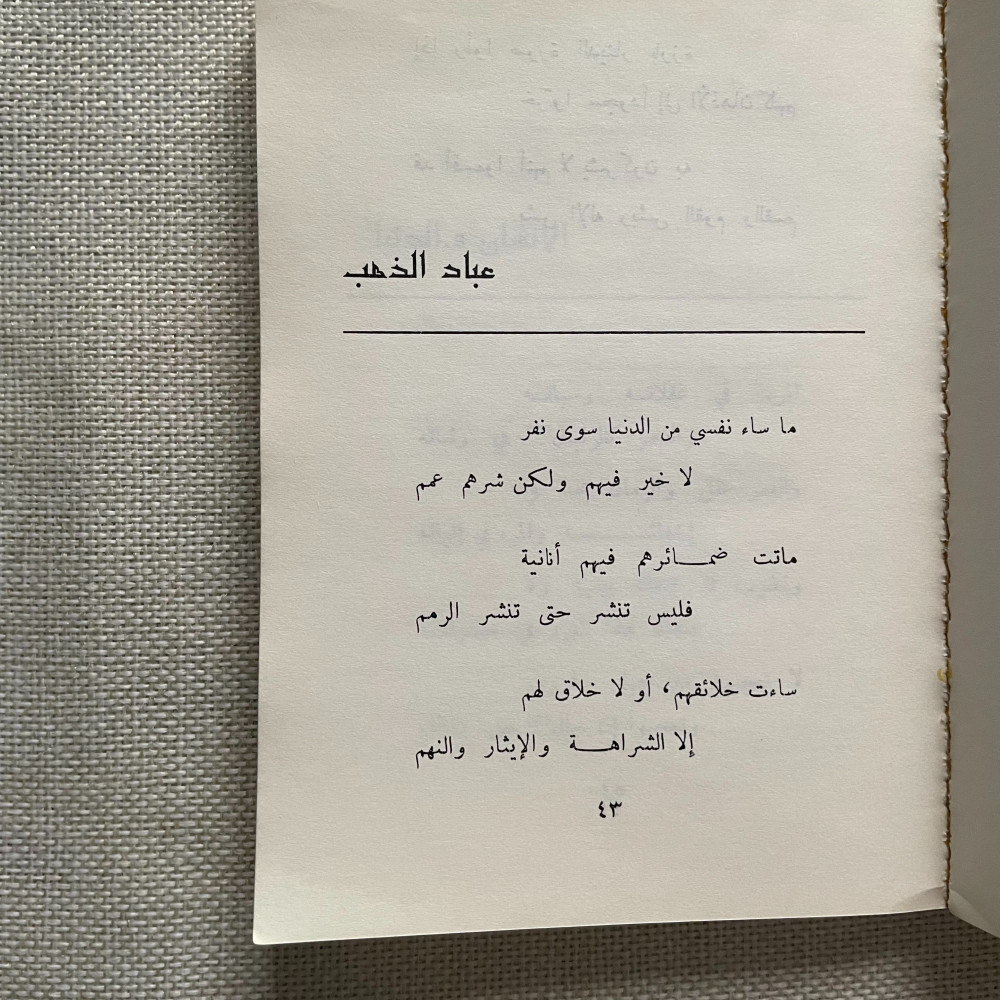 عباد الذهب
ما ساء نفسي من الدنيا سوى نفر
لا خير فيهم ولكن شرهم عمم
ماتت ضمـائرهم فيهم أنانية
فليس تنشر حتى تنشر الرمم
ساءت خلائقهم، أو لا خلاق لهم
إلا الشراهـة والإيثار والنهم
٤٣